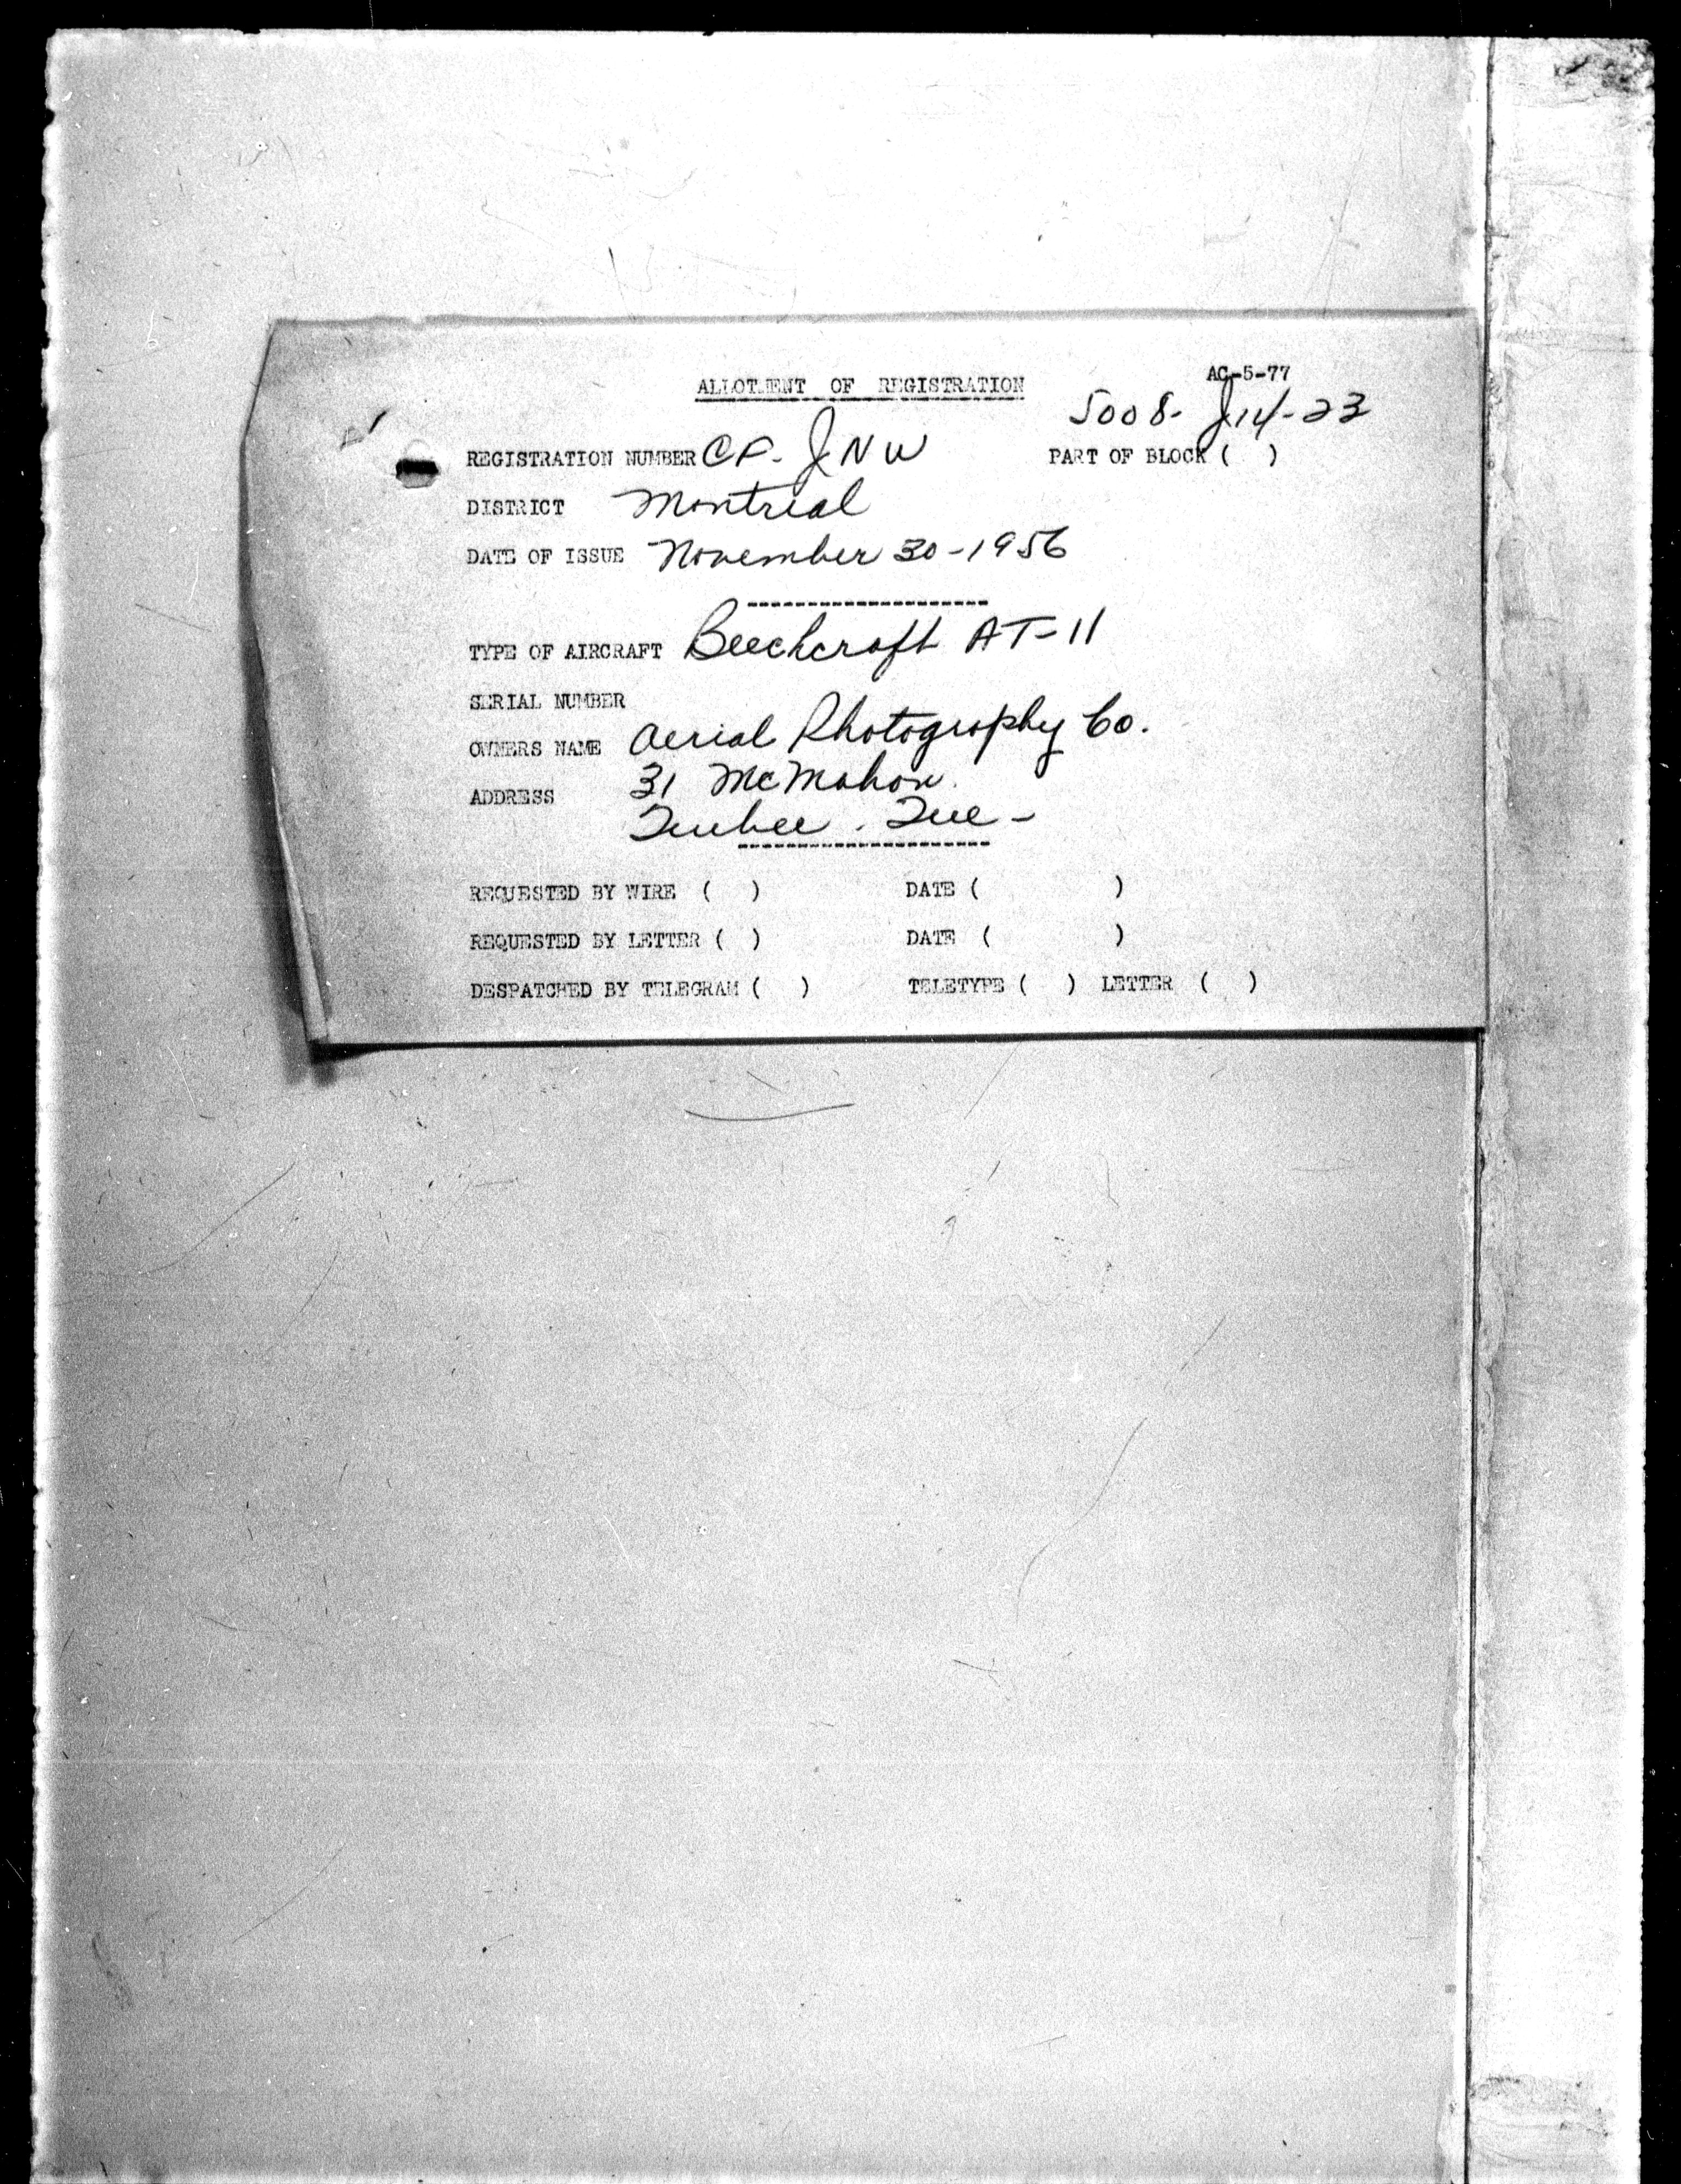 AC-5-77
ALLOTMENT OF REGISTRATION
5008-J14-23
REGISTRATION NUMBER CF-JNW PART OF BLOCK ( )
DISTRICT Montreal
DATE OF ISSUE November 30-1956
TYPE OF AIRCRAFT Beechcraft AT-11
SERIAL NUMBER
OWNERS NAME Aerial Photography Co.
ADDRESS 31 McMahon
Quebec. Que-
REQUESTED BY WIRE ( ) DATE ( )
REQUESTED BY LETTER ( ) DATE ( )
DESPATCHED BY TELEGRAM ( ) TELETYPE ( ) LETTER ( )